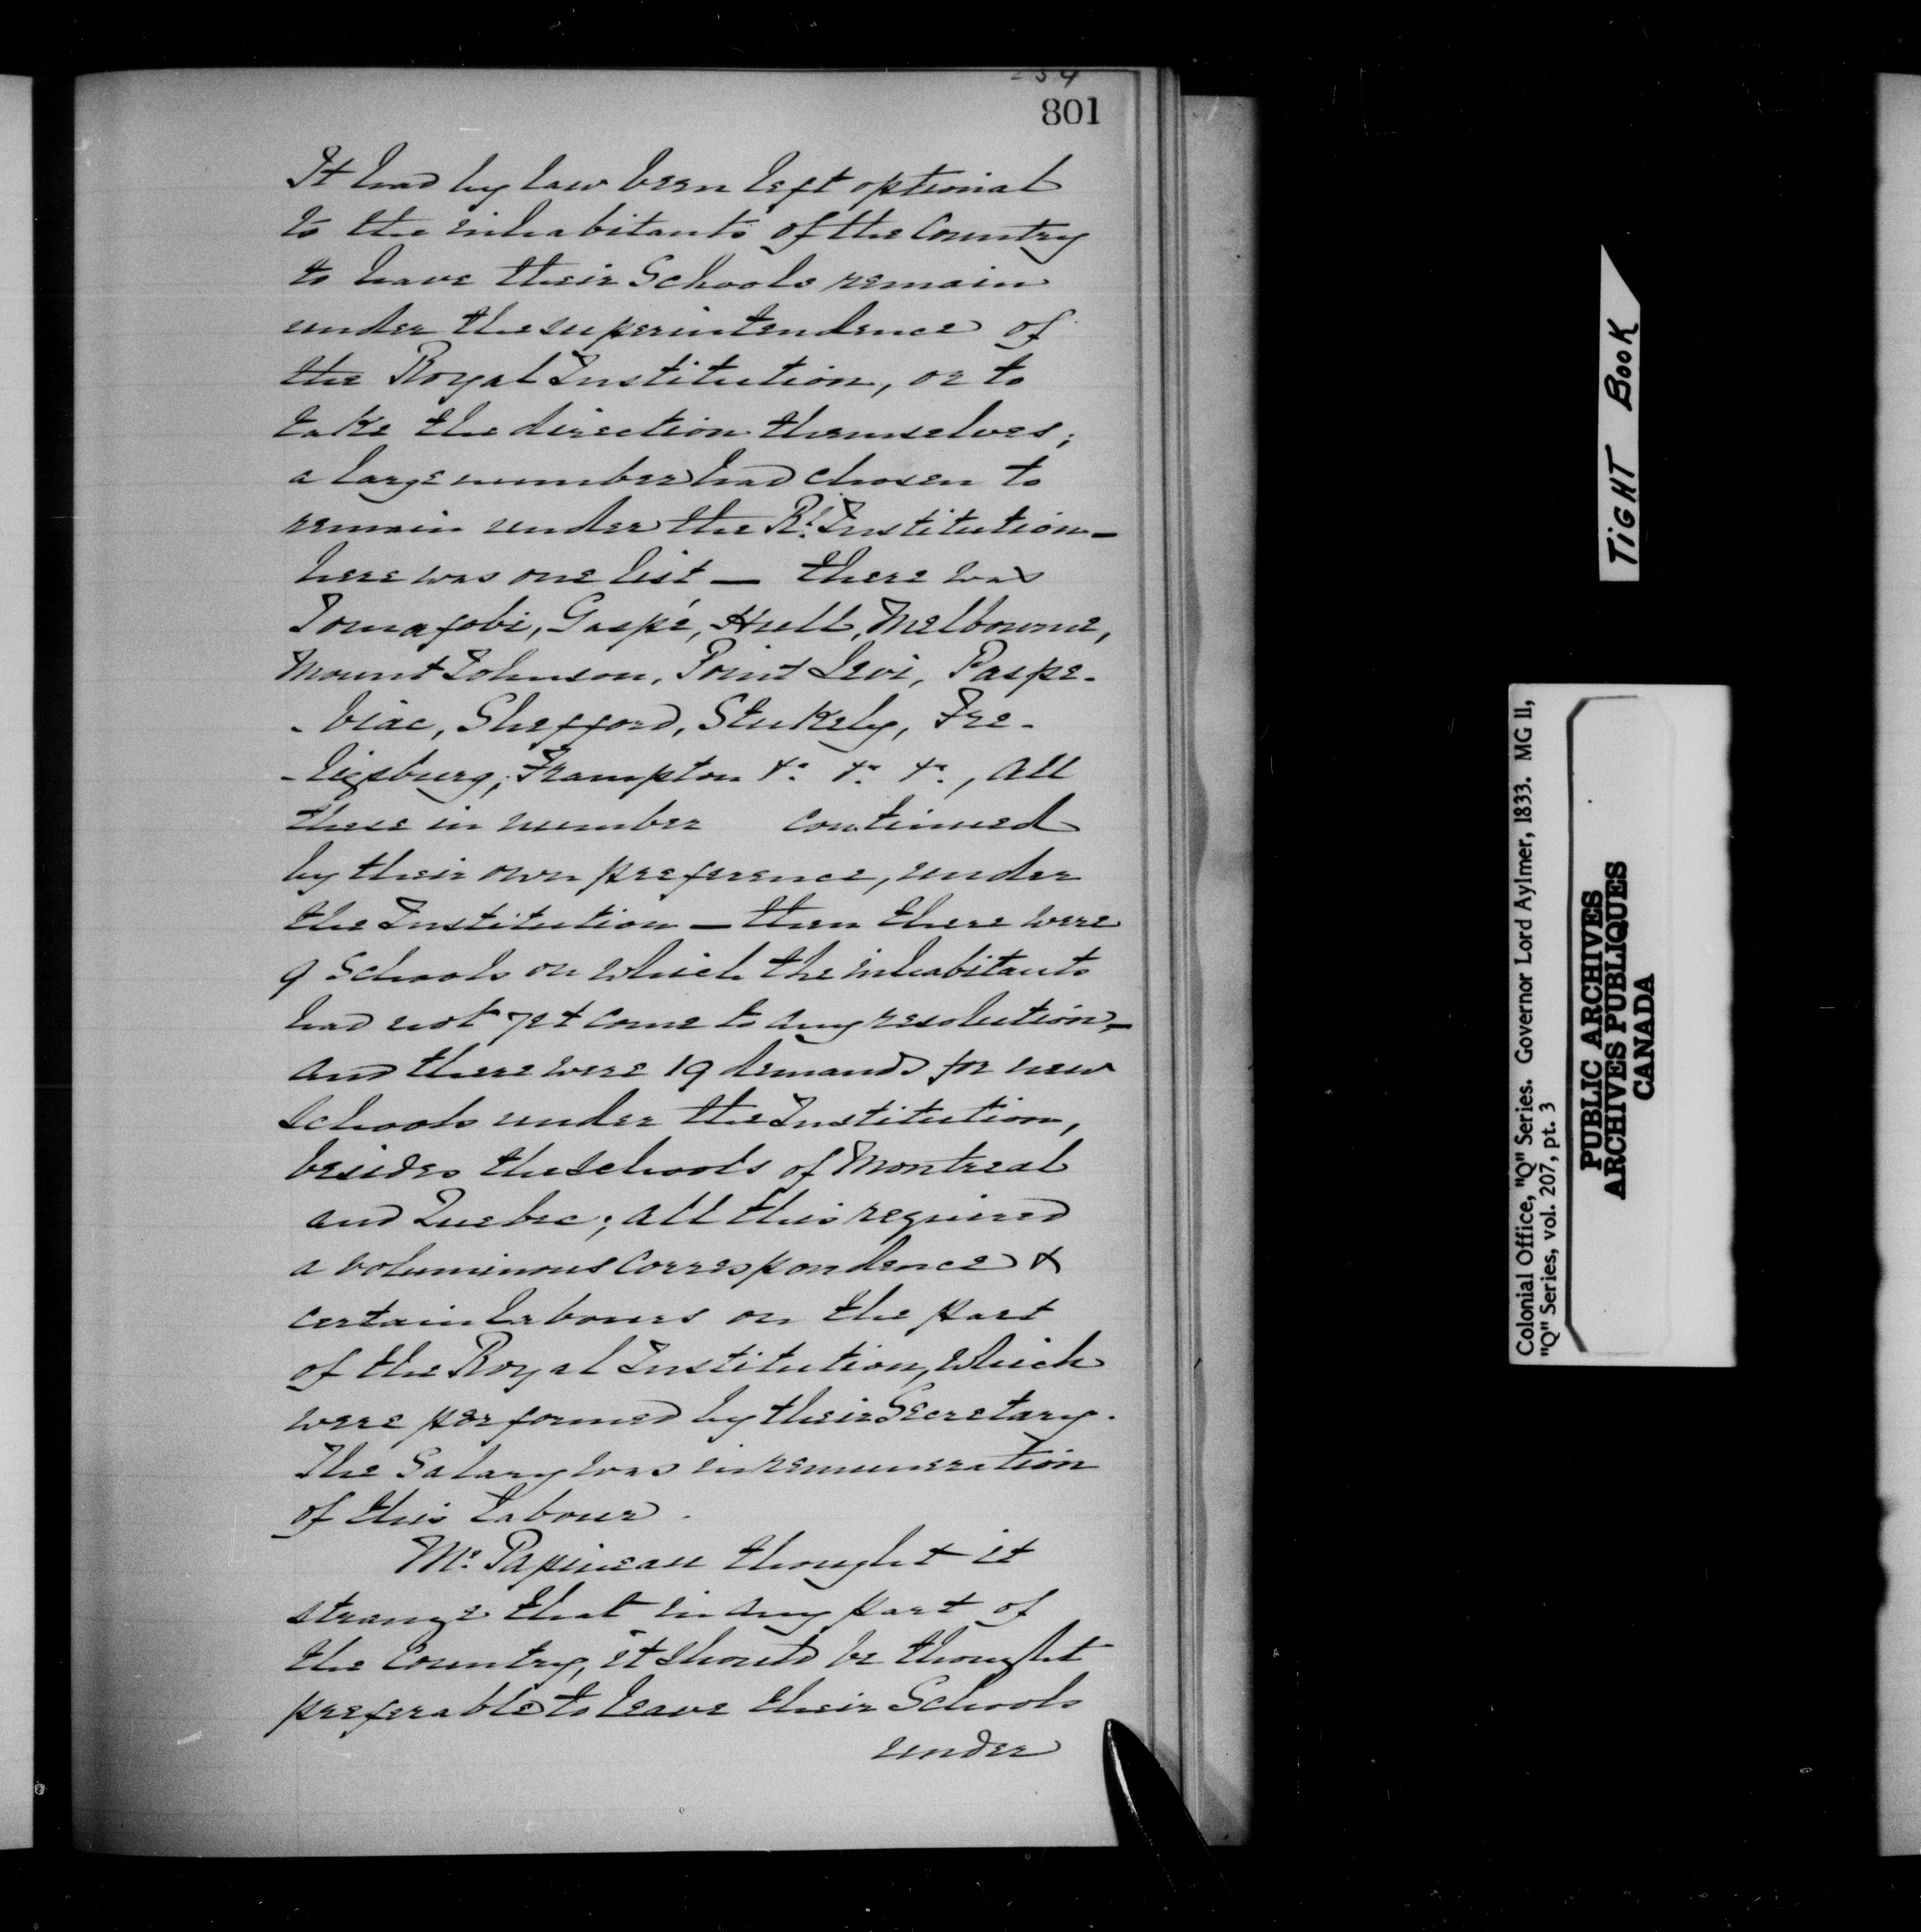 801
It had by law been left optional
to the inhabitants of the Country
to have their Schools remain
under the superintendence of
the Royal Institution, or to
take the direction themselves;
a large number had chosen to
remain under the Rl. Institution —
here was one list — there was
Tomafobi, Gaspé, Hull, Melbourne,
Mount Johnson, Point Levi, Paspe-
-biac, Shefford, Stukely, Fre-
-ligsburg, Frampton &a. &a. &a., all
these in number continued
by their own preference, under
the Institution — then there were
9 Schools on which the inhabitants
had not yet come to any resolution, —
and there were 19 demands for new
Schools under the Institution,
besides the schools of Montreal
and Quebec; all this required
a voluminous correspondence &
certain labours on the part
of the Royal Institution, which
were performed by their Secretary.
The Salary was in remuneration
of this labour.
Mr. Papineau thought it
strange that in any part of
the Country, it should be thought
preferable to leave their Schools
under
TIGHT BOOK
Colonial Office, "Q" Series. Governor Lord Aylmer, 1833. MG 11,
"Q" Series, vol. 207, pt. 3
PUBLIC ARCHIVES
ARCHIVES PUBLIQUES
CANADA